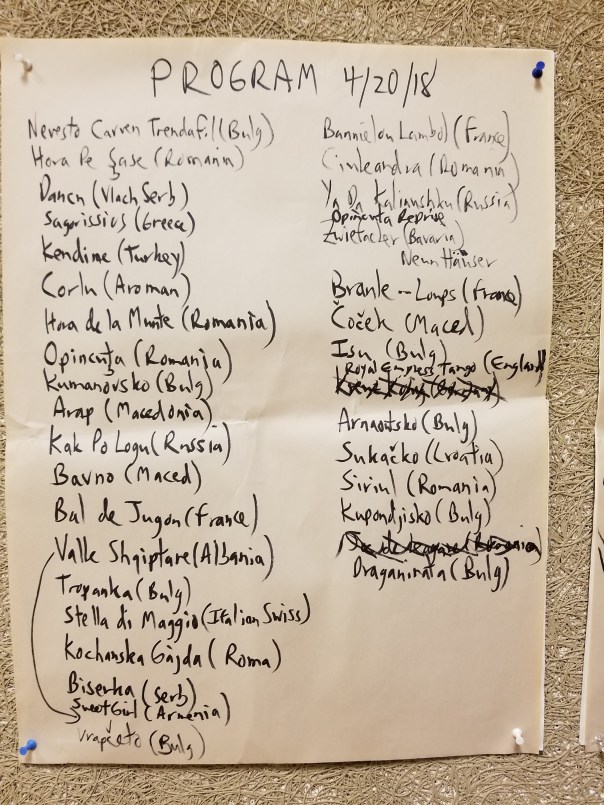 PROGRAM 4/20/18
Nevesto Carven Trendafil (Bulg)
Hora Pe Șase (Romania)
Danca (Vlach Serb)
Sagorissios (Greece)
Kendime (Turkey)
Corlu (Aroman)
Hora de la Munte (Romania)
Opincuța (Romania)
Kumanovsko (Bulg)
Arap (Macedonia)
Kak Po Logu (Russia)
Bavno (Maced)
Bal de Jugon (France)
Valle Shqiptare (Albania)
Tropanka (Bulg)
Stella di Maggio (Italian Swiss)
Kochanska Gajda (Roma)
Biserka (Serb)
Sweet Girl (Armenia)
Vrapčeto (Bulg)
Lambol (France)
Ciuleandra (Romania)
Ya Da Kalinushku (Russia)
Opincuta Reprise
Zwiefacher (Bavaria)
Neun Häuser
Branle -- Loups (France)
Čoček (Maced)
(Bulg)
Royal Empress Tango (England)
Arnaoutsko (Bulg)
Sukačko (Croatia)
Siriul (Romania)
Kupondjisko (Bulg)
Draganinata (Bulg)